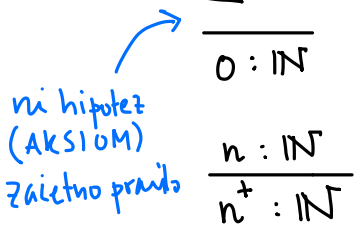 0 : ℕ
ni hipotez
(AKSIOM)
začetno pravilo
n : ℕ
n⁺ : ℕ